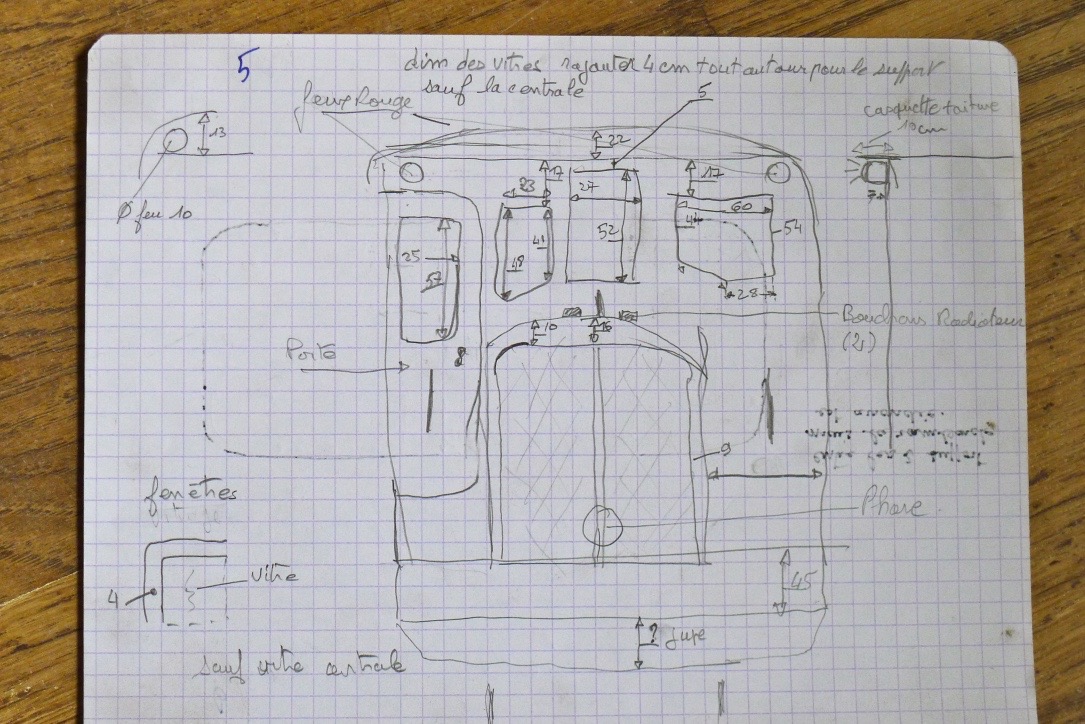 5
dim des vitres rajouter 4 cm tout autour pour le support
sauf la centrale
feux Rouge
5
casquette toiture
10cm
13
Ø feu 10
22
17
23
27
17
60
54
52
41
48
25
57
28
10
16
Bouchons Radiateur
(2)
Porte
8
9
fenêtres
Phare
vitre
4
45
? jupe
sauf vitre centrale